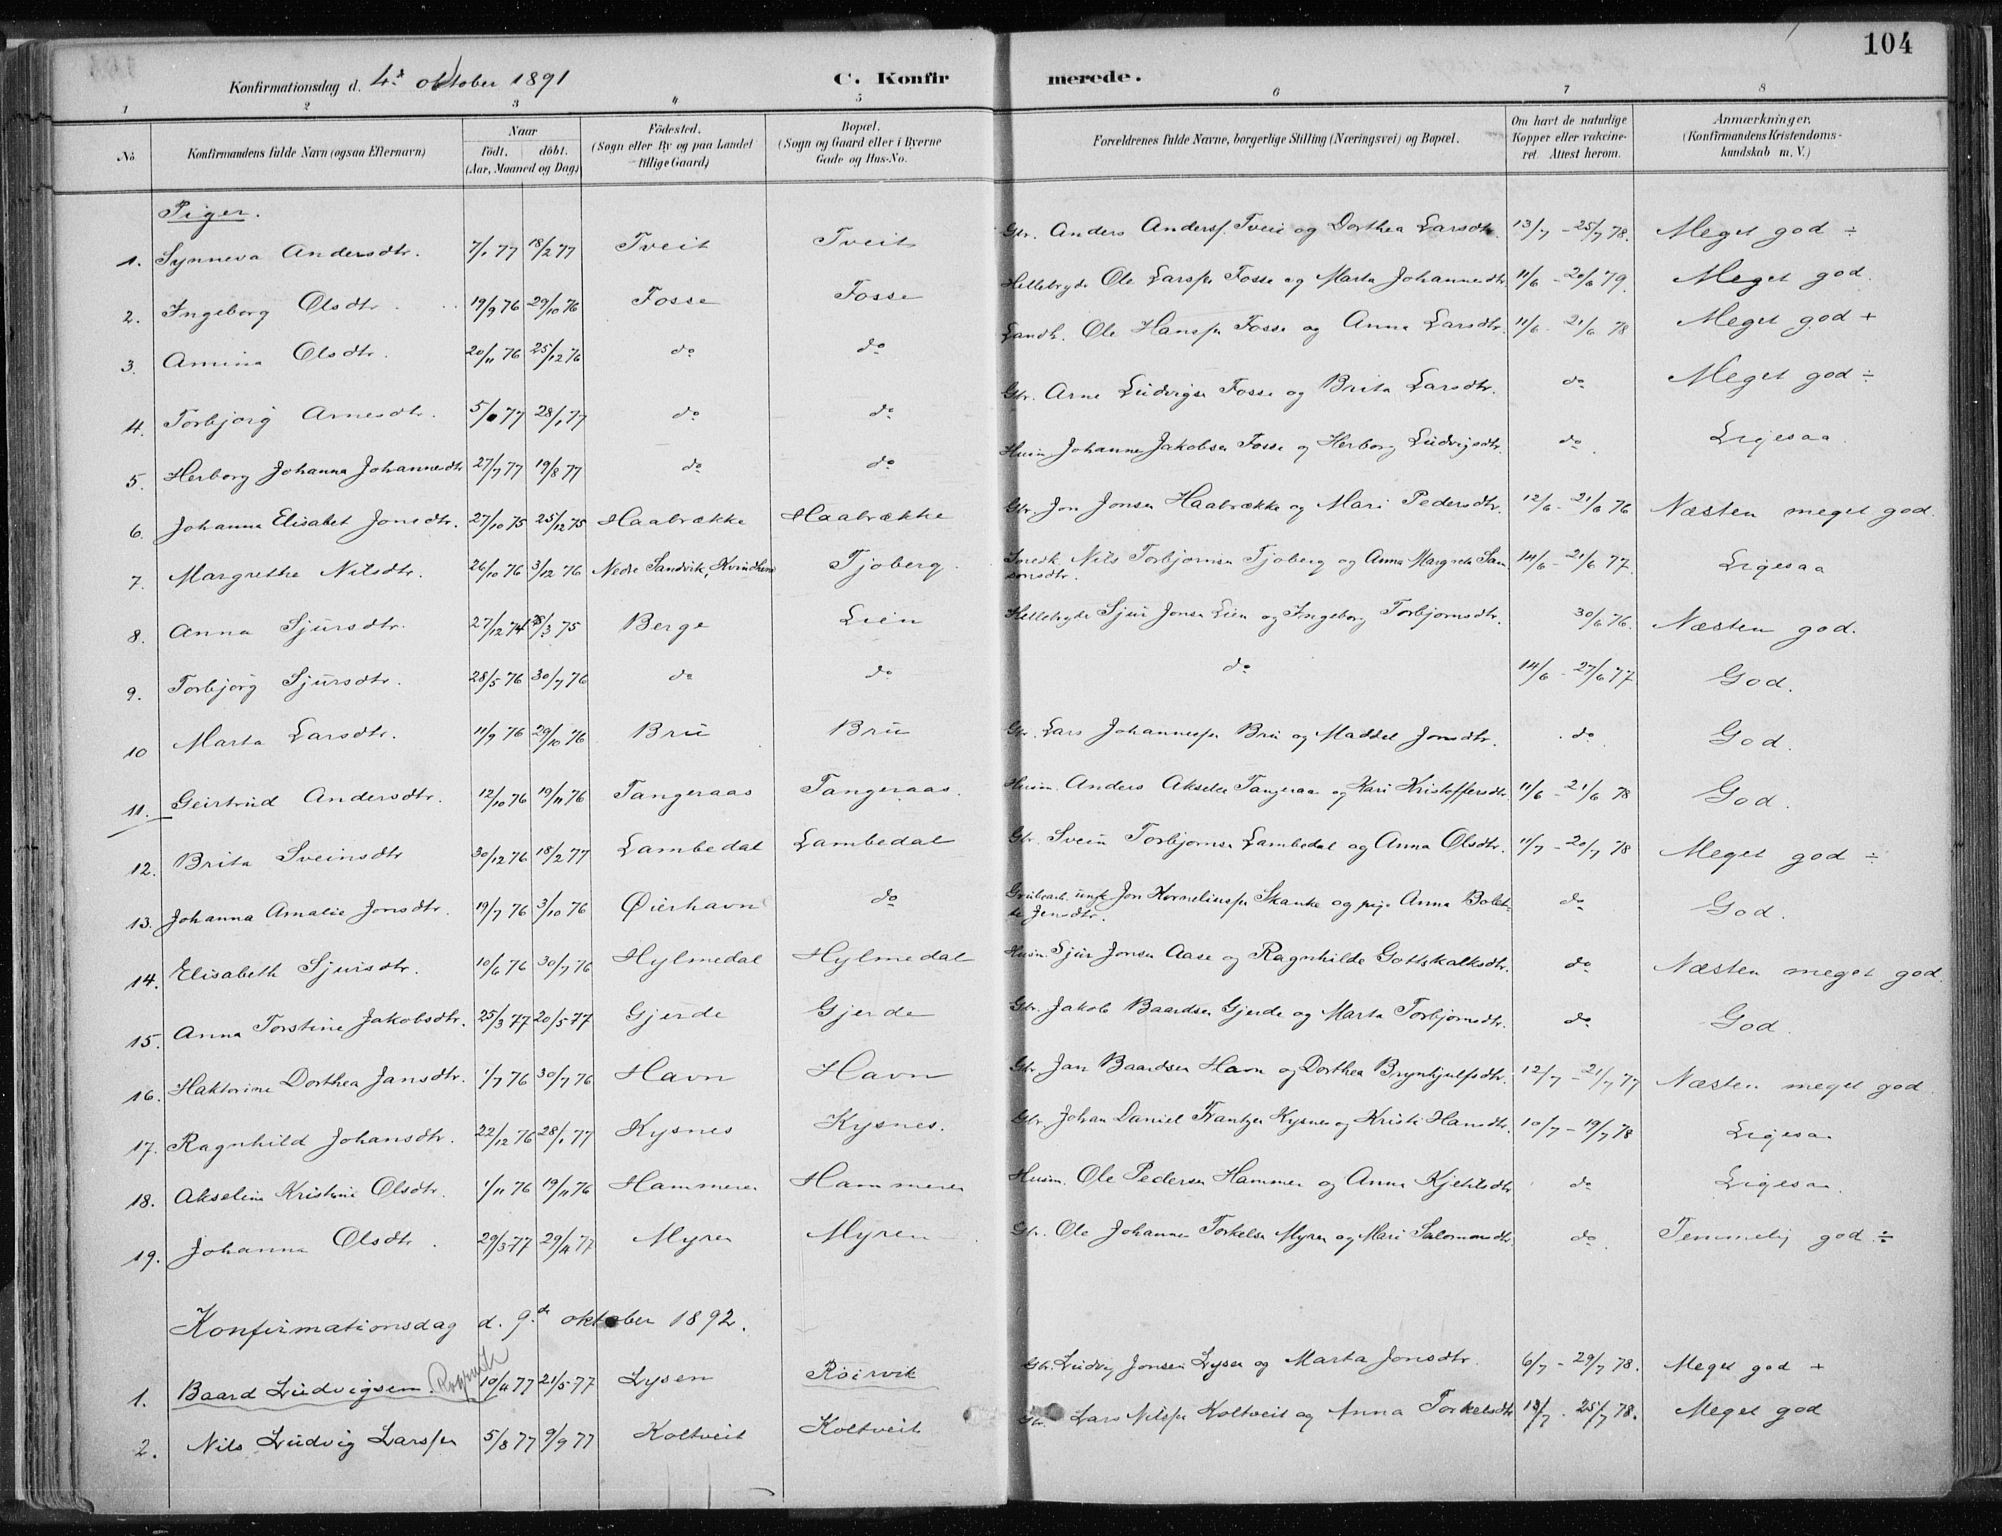 104
Konfirmationsdag d. 4de oktober 1891 C. Konfirmerede.
1 2 3 4 5 6 7 8
No. Konfirmandens fulde Navn (ogsaa Efternavn) Naar Födt. döbt. (Aar, Maaned og Dag) Födested. (Sogn eller By og paa Landet tillige Gaard) Bopæl. (Sogn og Gaard eller i Byerne Gade og Hus-No. Forældrenes fulde Navne, borgerlige Stilling (Næringsvei) og Bopæl. Om havt de naturlige Kopper eller vakcineret. Attest herom. Anmærkninger. (Konfirmandens Kristendomskundskab m. V.)
Piger.
1. Synneva Andersdtr. 7/1 77 18/2 77 Tveit Tveit Gbr. Anders Anders. Tveit og Dorthea Larsdtr. 13/7 - 25/7 78. Meget god ÷
2. Ingeborg Olsdtr. 19/9 76 29/10 76 Fosse Fosse Hellebryder Ole Larssen Fosse og Marta Johannesdtr 11/6 - 20/6 79. Meget god.
3. Amina Olsdtr. 20/11 76 25/12 76 do do Landh. Ole Hanssen Fosse og Anna Larsdtr. 11/6 - 21/6 78 Meget god +
4. Torbjörg Arnesdtr. 5/1 77 28/1 77 do do Gbr. Arne Ludvigsen Fosse og Brita Larsdtr. do Meget god ÷
5. Herborg Johanna Johannesdtr 27/7 77 19/8 77 do do Husm. Johannes Jakobsen Fosse og Herborg Ludvigsdtr. do Ligesaa.
6. Johanna Elisabet Jonsdtr. 27/10 75 25/12 75 Haabrække Haabrække Gbr. Jon Jonsen Haabrække og Mari Pedersdtr. 12/6 - 21/6 76 Næsten meget god.
7. Margrethe Nilsdtr. 26/10 76 3/12 76 Nedre Sandvik, Kvindherred Tjoberg. Nils Torbjörnsen Tjoberg og Anna Margreta Samsonsdtr. 14/6 - 21/6 77. Ligesaa
8. Anna Sjursdtr. 27/12 74 28/3 75 Berge Lien Hellebryder Sjur Jonsen Lien og Ingeborg Torbjörnsdtr. 30/6 76. Næsten god.
9. Torbjörg Sjursdtr. 28/5 76 30/7 76 do do do 14/6 - 27/6 77 God.
10 Marta Larsdtr. 11/9 76 29/10 76 Bru Bru Gbr. Lars Johannessen Bru og Maddel Jonsdtr. do God.
11. Geirtrud Andersdtr. 12/10 76 19/11 76 Tangeraas Tangeraas. Husm. Anders Akselsen Tangeraas og Kari Kristoffersdtr. 11/6 - 21/6 78 God.
12. Brita Sveinsdtr 30/12 76 18/2 77 Lambedal Lambedal Gbr. Svein Torbjörnsen Lambedal og Anna Olsdtr. 11/7 - 20/7 78 Meget god ÷
13. Johanna Amalie Jonsdtr. 19/7 76 3/10 76 Öierhavn do Grubearb. ungk. Jon Korneliussen Skanke og pige Anna Bolette Jensdtr. do God.
14. Elisabeth Sjursdtr. 10/6 76 30/7 76 Hylmedal Hylmedal Husm. Sjur Jonsen Aase og Ragnhilde Gottskalksdtr. do Næsten meget god.
15. Anna Torstine Jakobsdtr. 25/3 77 20/5 77 Gjerde Gjerde Gbr. Jakob Baardsen Gjerde og Marta Torbjörnsdtr. do God.
16. Haktorine Dorthea Jansdtr. 1/7 76 30/7 76 Havn Havn Gbr. Jan Baardsen Havn og Dorthea Brynhjulfsdtr. 12/7 - 21/7 77 Næsten meget god
17. Ragnhild Johansdtr. 22/12 76 28/1 77 Kysnes Kysnes. Gbr. Johan Daniel Frantzen Kysnes og Kristi Hansdtr. 10/7 - 19/7 78 Ligesaa
18. Akseline Kristine Olsdtr. 1/11 76 19/11 76 Hammeren Hammeren Husm. Ole Pedersen Hammer og Anna Kjetilsdtr do Ligesaa.
19. Johanna Olsdtr. 29/3 77 29/4 77 Myren Myren Gbr. Ole Johannes Torkelsen Myren og Mari Salomonsdtr. do Temmelig god ÷
Konfirmationsdag d. 9de oktober 1892.
1. Baard Ludvigsen. 10/4 77 21/5 77 Lysen Röirvik Gbr. Ludvig Jonsen Lysen og Marta Jonsdtr. 6/7 - 29/7 78. Meget god +
2. Nils Ludvig Larssen 5/8 77 9/9 77 Koltveit Koltveit Gbr. Lars Nilssen Koltveit og Anna Torkelsdtr 13/7 - 25/7 78. Meget god